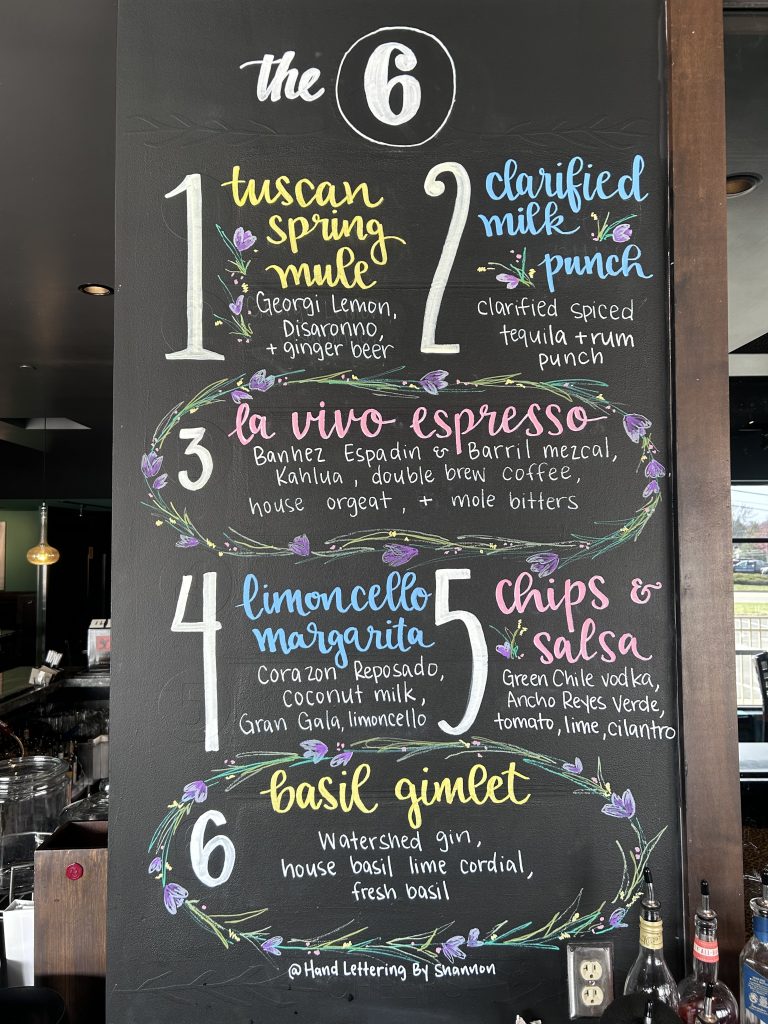 the 6
1
tuscan
spring
mule
Georgi Lemon,
Disaronno,
+ ginger beer
2
clarified
milk
punch
clarified spiced
tequila + rum
punch
3
la vivo espresso
Banhez Espadin & Barril mezcal,
Kahlua, double brew coffee,
house orgeat, + mole bitters
4
limoncello
margarita
Corazon Reposado,
coconut milk,
Gran Gala, limoncello
5
chips &
salsa
Green Chile vodka,
Ancho Reyes Verde,
tomato, lime, cilantro
6
basil gimlet
Watershed gin,
house basil lime cordial,
fresh basil
@Hand Lettering By Shannon